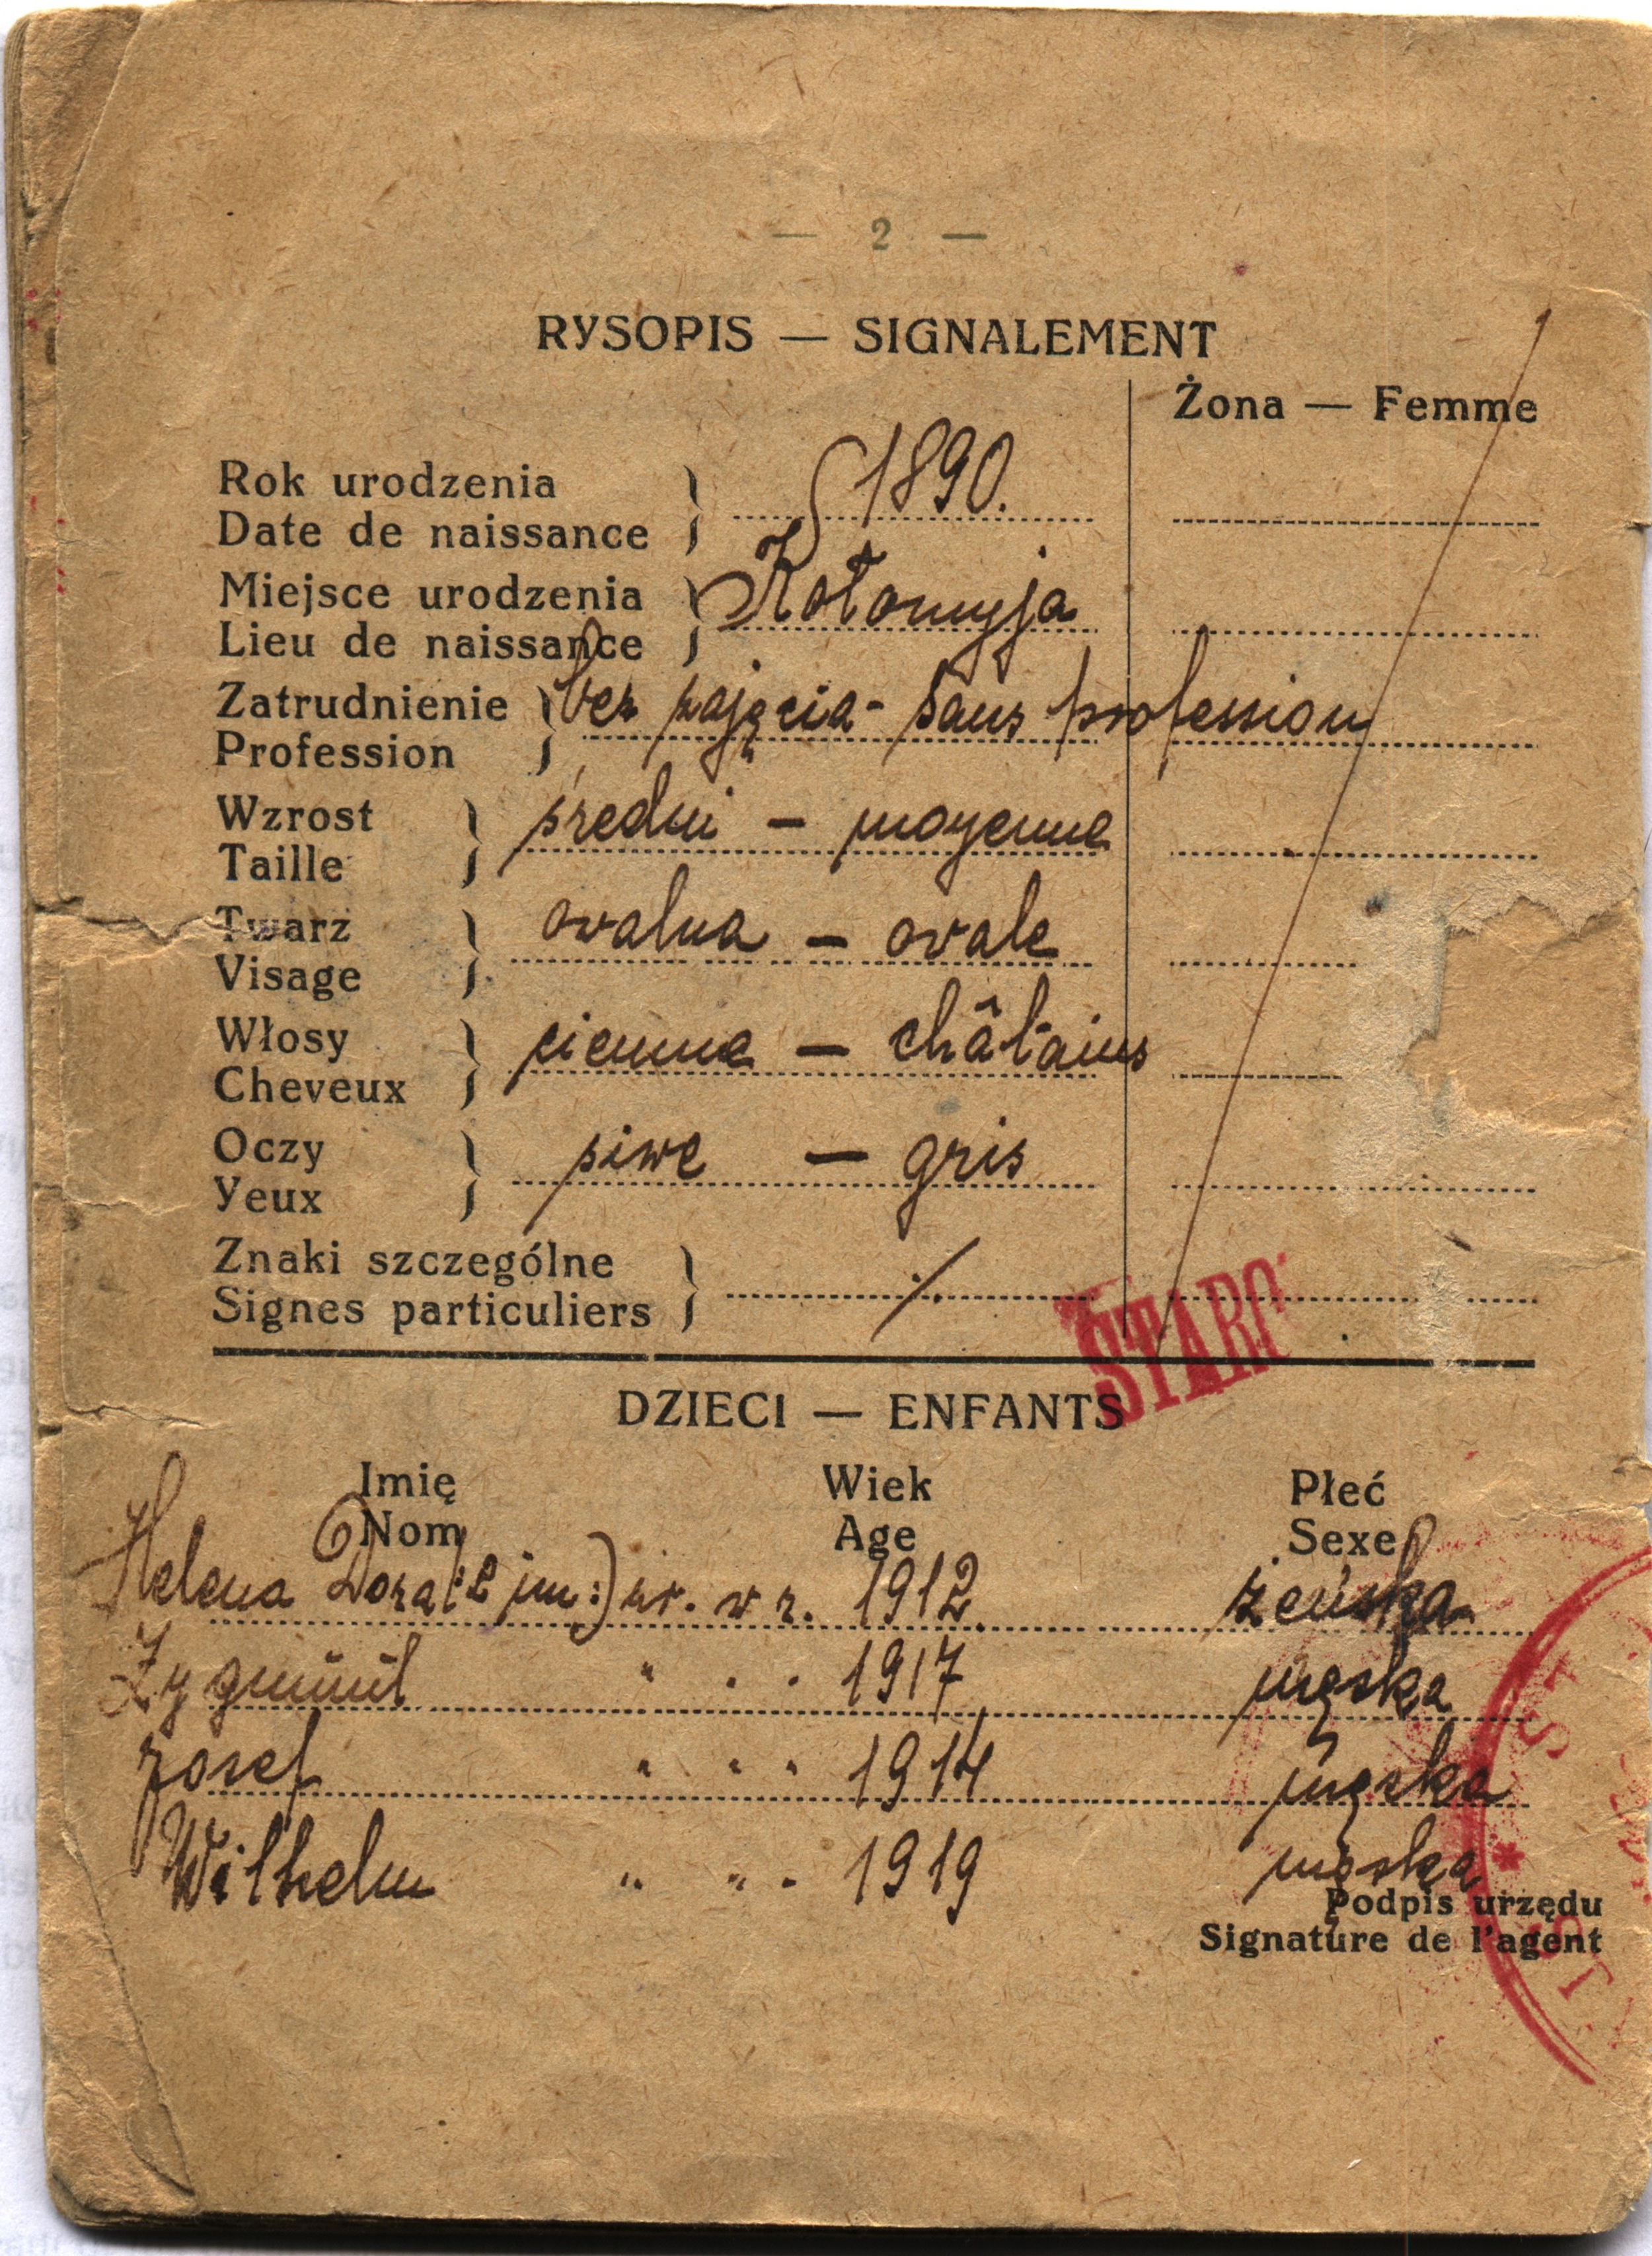 — 2 —
RYSOPIS — SIGNALEMENT
Żona — Femme
Rok urodzenia
Date de naissance
1890.
Miejsce urodzenia
Lieu de naissance
Kołomyja
Zatrudnienie
Profession
bez zajęcia - sans profession
Wzrost
Taille
średni — moyenne
Twarz
Visage
owalna — ovale
Włosy
Cheveux
ciemne — châtains
Oczy
Yeux
siwe — gris
Znaki szczególne
Signes particuliers
./.
STARO
DZIECI — ENFANTS
Imię Wiek Płeć
Nom Age Sexe
Helena Dora (2 im:) ur. w r. 1912. żeńska
Zygmunt " " " 1917 męska
Josef " " " 1914 męska
Wilhelm " " " 1919 męska
Podpis urzędu
Signature de l'agent